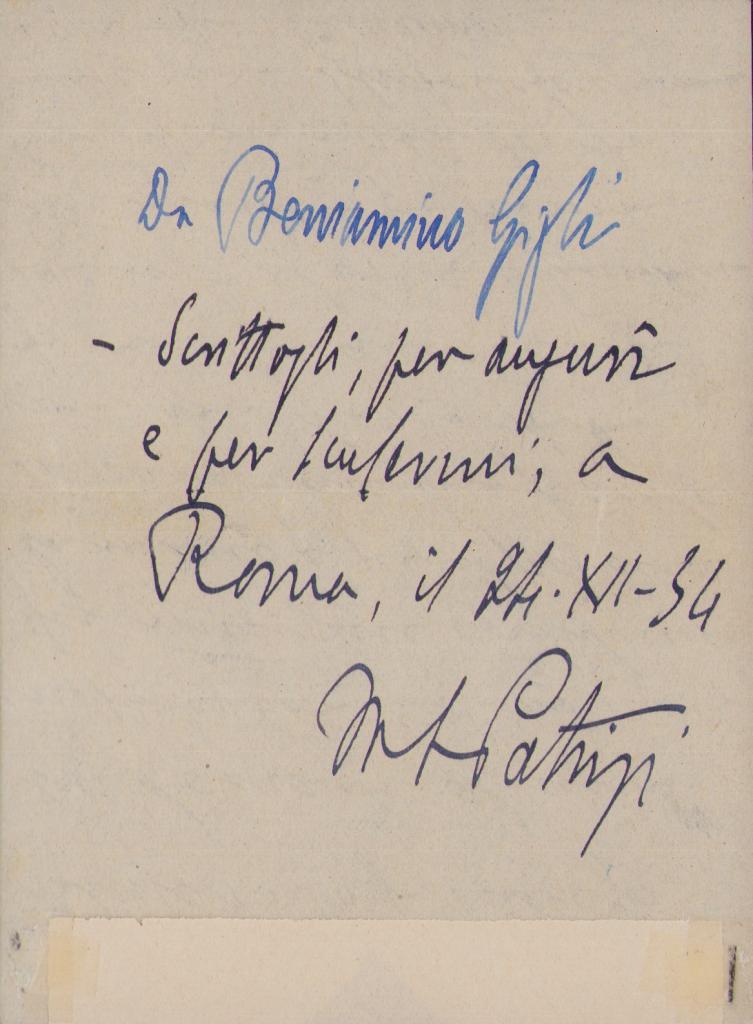 Da Beniamino Gigli
- Scrittogli, per augurî
e per , a
Roma, il 24.XII-34
M L Patrizi